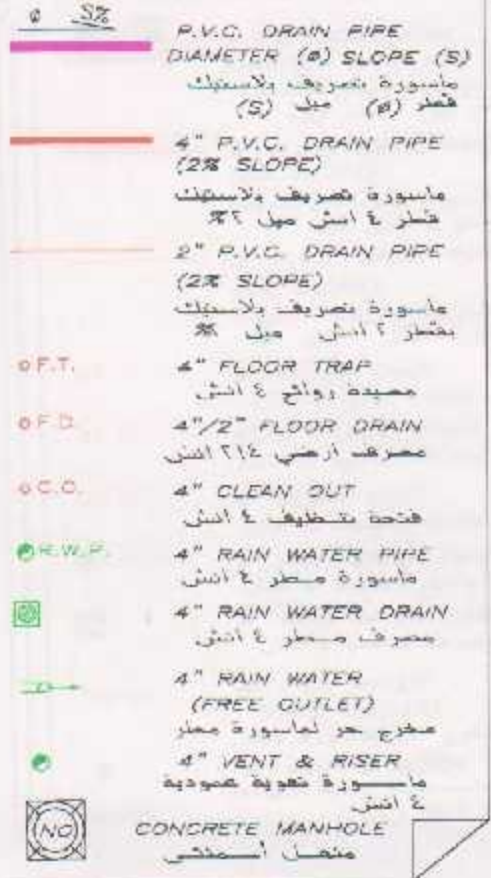 ø S%
P.V.C. DRAIN PIPE
DIAMETER (ø) SLOPE (S)
ماسورة تصريف بلاستيك
قطر (ø) ميل (S)
4" P.V.C. DRAIN PIPE
(2% SLOPE)
ماسورة تصريف بلاستيك
قطر ٤ انش ميل ٢%
2" P.V.C. DRAIN PIPE
(2% SLOPE)
ماسورة تصريف بلاستيك
بقطر ٢ انش ميل ٢%
F.T. 4" FLOOR TRAP
مصيدة روائح ٤ انش
F.D. 4"/2" FLOOR DRAIN
مصرف أرضي ٢/٤ انش
C.O. 4" CLEAN OUT
فتحة تنظيف ٤ انش
R.W.P. 4" RAIN WATER PIPE
ماسورة مطر ٤ انش
4" RAIN WATER DRAIN
مصرف مطر ٤ انش
4" RAIN WATER
(FREE OUTLET)
مخرج حر لماسورة مطر
4" VENT & RISER
ماسورة تهوية عمودية
٤ انش
NO CONCRETE MANHOLE
منهل أسمنتي